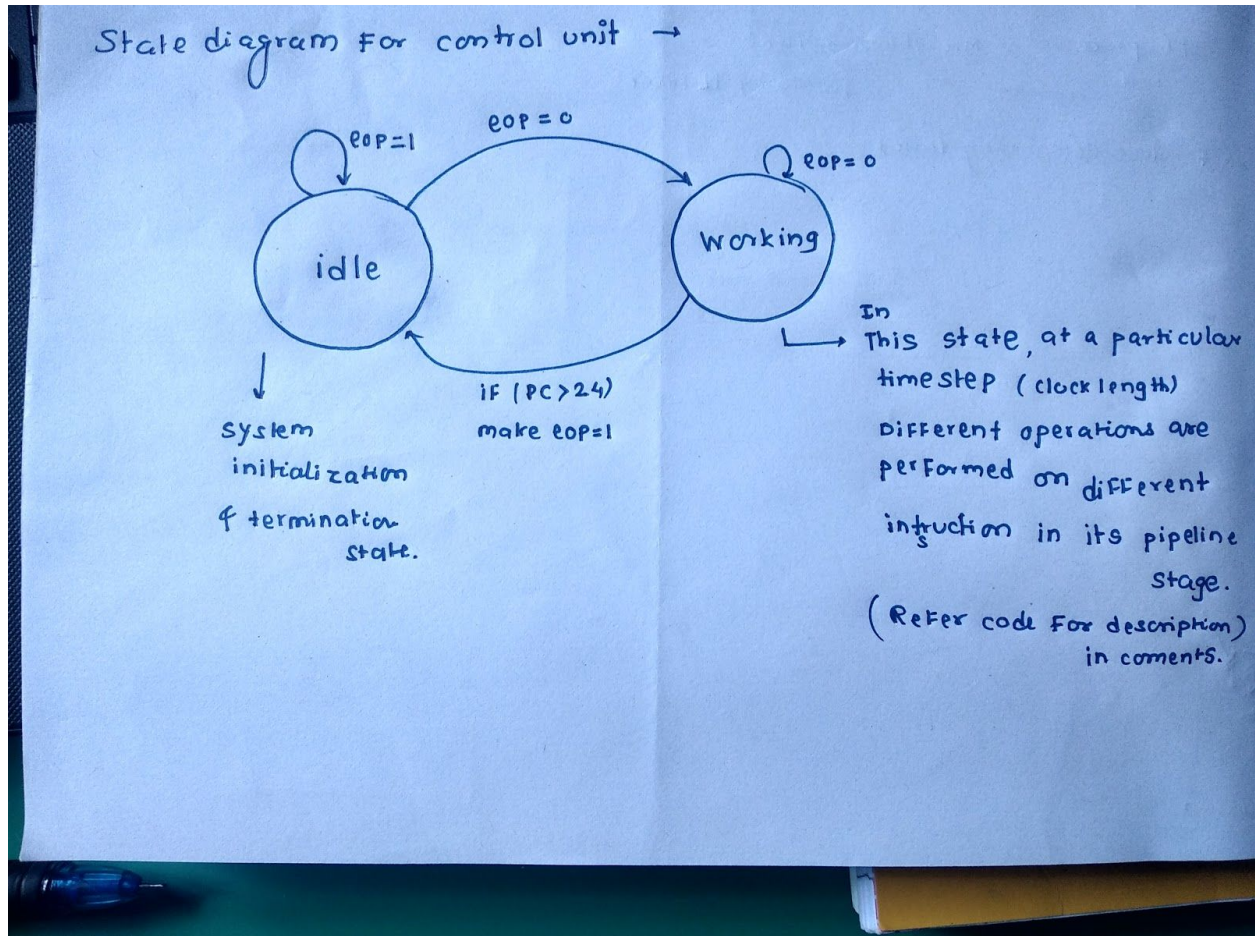 State diagram For control unit →
eop=1
eop = 0
eop= 0
idle
working
if (PC>24)
make eop=1
system
initialization
& termination
state.
In
This state, at a particular
timestep (clock length)
Different operations are
performed on different
intruction in its pipeline
s
stage.
(Refer code For description)
in coments.